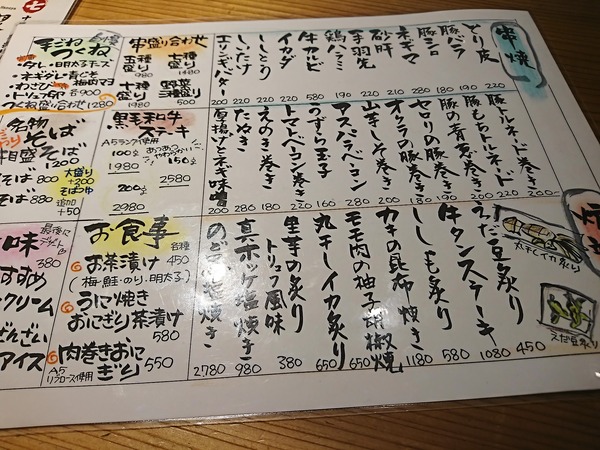 手ごねつくね 自慢
・タレ・明太チーズ
・ネギダレ・青じそ
・わさび・梅肉マヨ
・トリュフTKG 各900
つくね盛り合わせ 1280
串盛り合わせ
五種盛り 980
七種盛り 1480
十種盛り 1980
野菜三種盛り 500
串焼
とり皮 220
豚バラ 190
豚シロ 180
ネギマ 280
砂肝
手羽先
鶏ハラミ 190
牛カルビ 580
イカダ
ししとう 220
しいたけ 220
エリンギバター 200
豚トルネード巻き 200
豚もちトルネード 220
豚の青葱巻き 220
セロリの豚巻き
オクラの豚巻き 210
山芋しそ巻き 200
アスパラベーコン 280
うずら玉子 160
トマトベーコン巻き 220
えのき巻き 180
たぬき 286
厚揚げとネギ味噌 200
名物そば
相盛そば 1200
そば 800
そば 880
大盛り +200
そばつゆ追加 +50
黒毛和牛ステーキ
A5ランク使用
100g 1980
150g 2580
200g 2980
お食事 各種
お茶漬け 450
(梅・鮭・のり・明太子)
うに焼きおにぎり茶漬け 580
肉巻きおにぎり 550
A5リブロース使用
味
380
すすめ
クリーム
ぜんざい
アイス
えだ豆炙り 450
牛タンステーキ 1080
ししゃも炙り 580
カキの昆布焼き 1180
モモ肉の柚子胡椒焼 650
丸干しイカ炙り 650
里芋の炙りトリュフ風味 380
真ホッケ塩焼き 980
のどぐろ塩焼き 2780
丸干しイカ炙り
えだ豆炙り